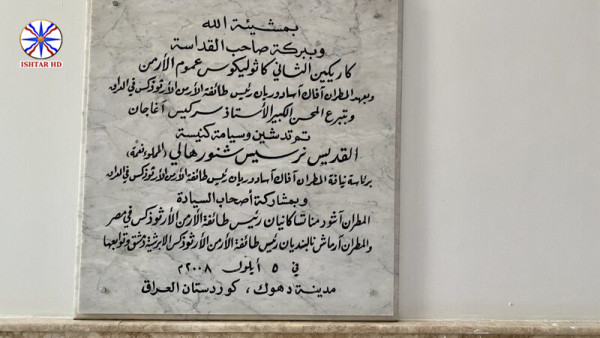 ISHTAR HD
بمشيئة الله
وببركة صاحب القداسة
كاريكين الثاني كاثوليكوس عموم الأرمن
وبعهد المطران آفاك أسادوريان رئيس طائفة الأرمن الأرثوذكس في العراق
وبتبرع المحسن الكبير الأستاذ سركيس آغاجان
تم تدشين وسيامة كنيسة
القديس نرسيس شنورهالي (المملوء نعمة)
برئاسة نيافة المطران آفاك أسادوريان رئيس طائفة الأرمن الأرثوذكس في العراق
وبمشاركة أصحاب السيادة
المطران آشود مناتساكانيان رئيس طائفة الأرمن الأرثوذكس في مصر
والمطران آرماش نالبنديان رئيس طائفة الأرمن الأرثوذكس لأبرشية دمشق وتوابعها
في ٥ أيلول ٢٠٠٨م
مدينة دهوك ، كوردستان العراق